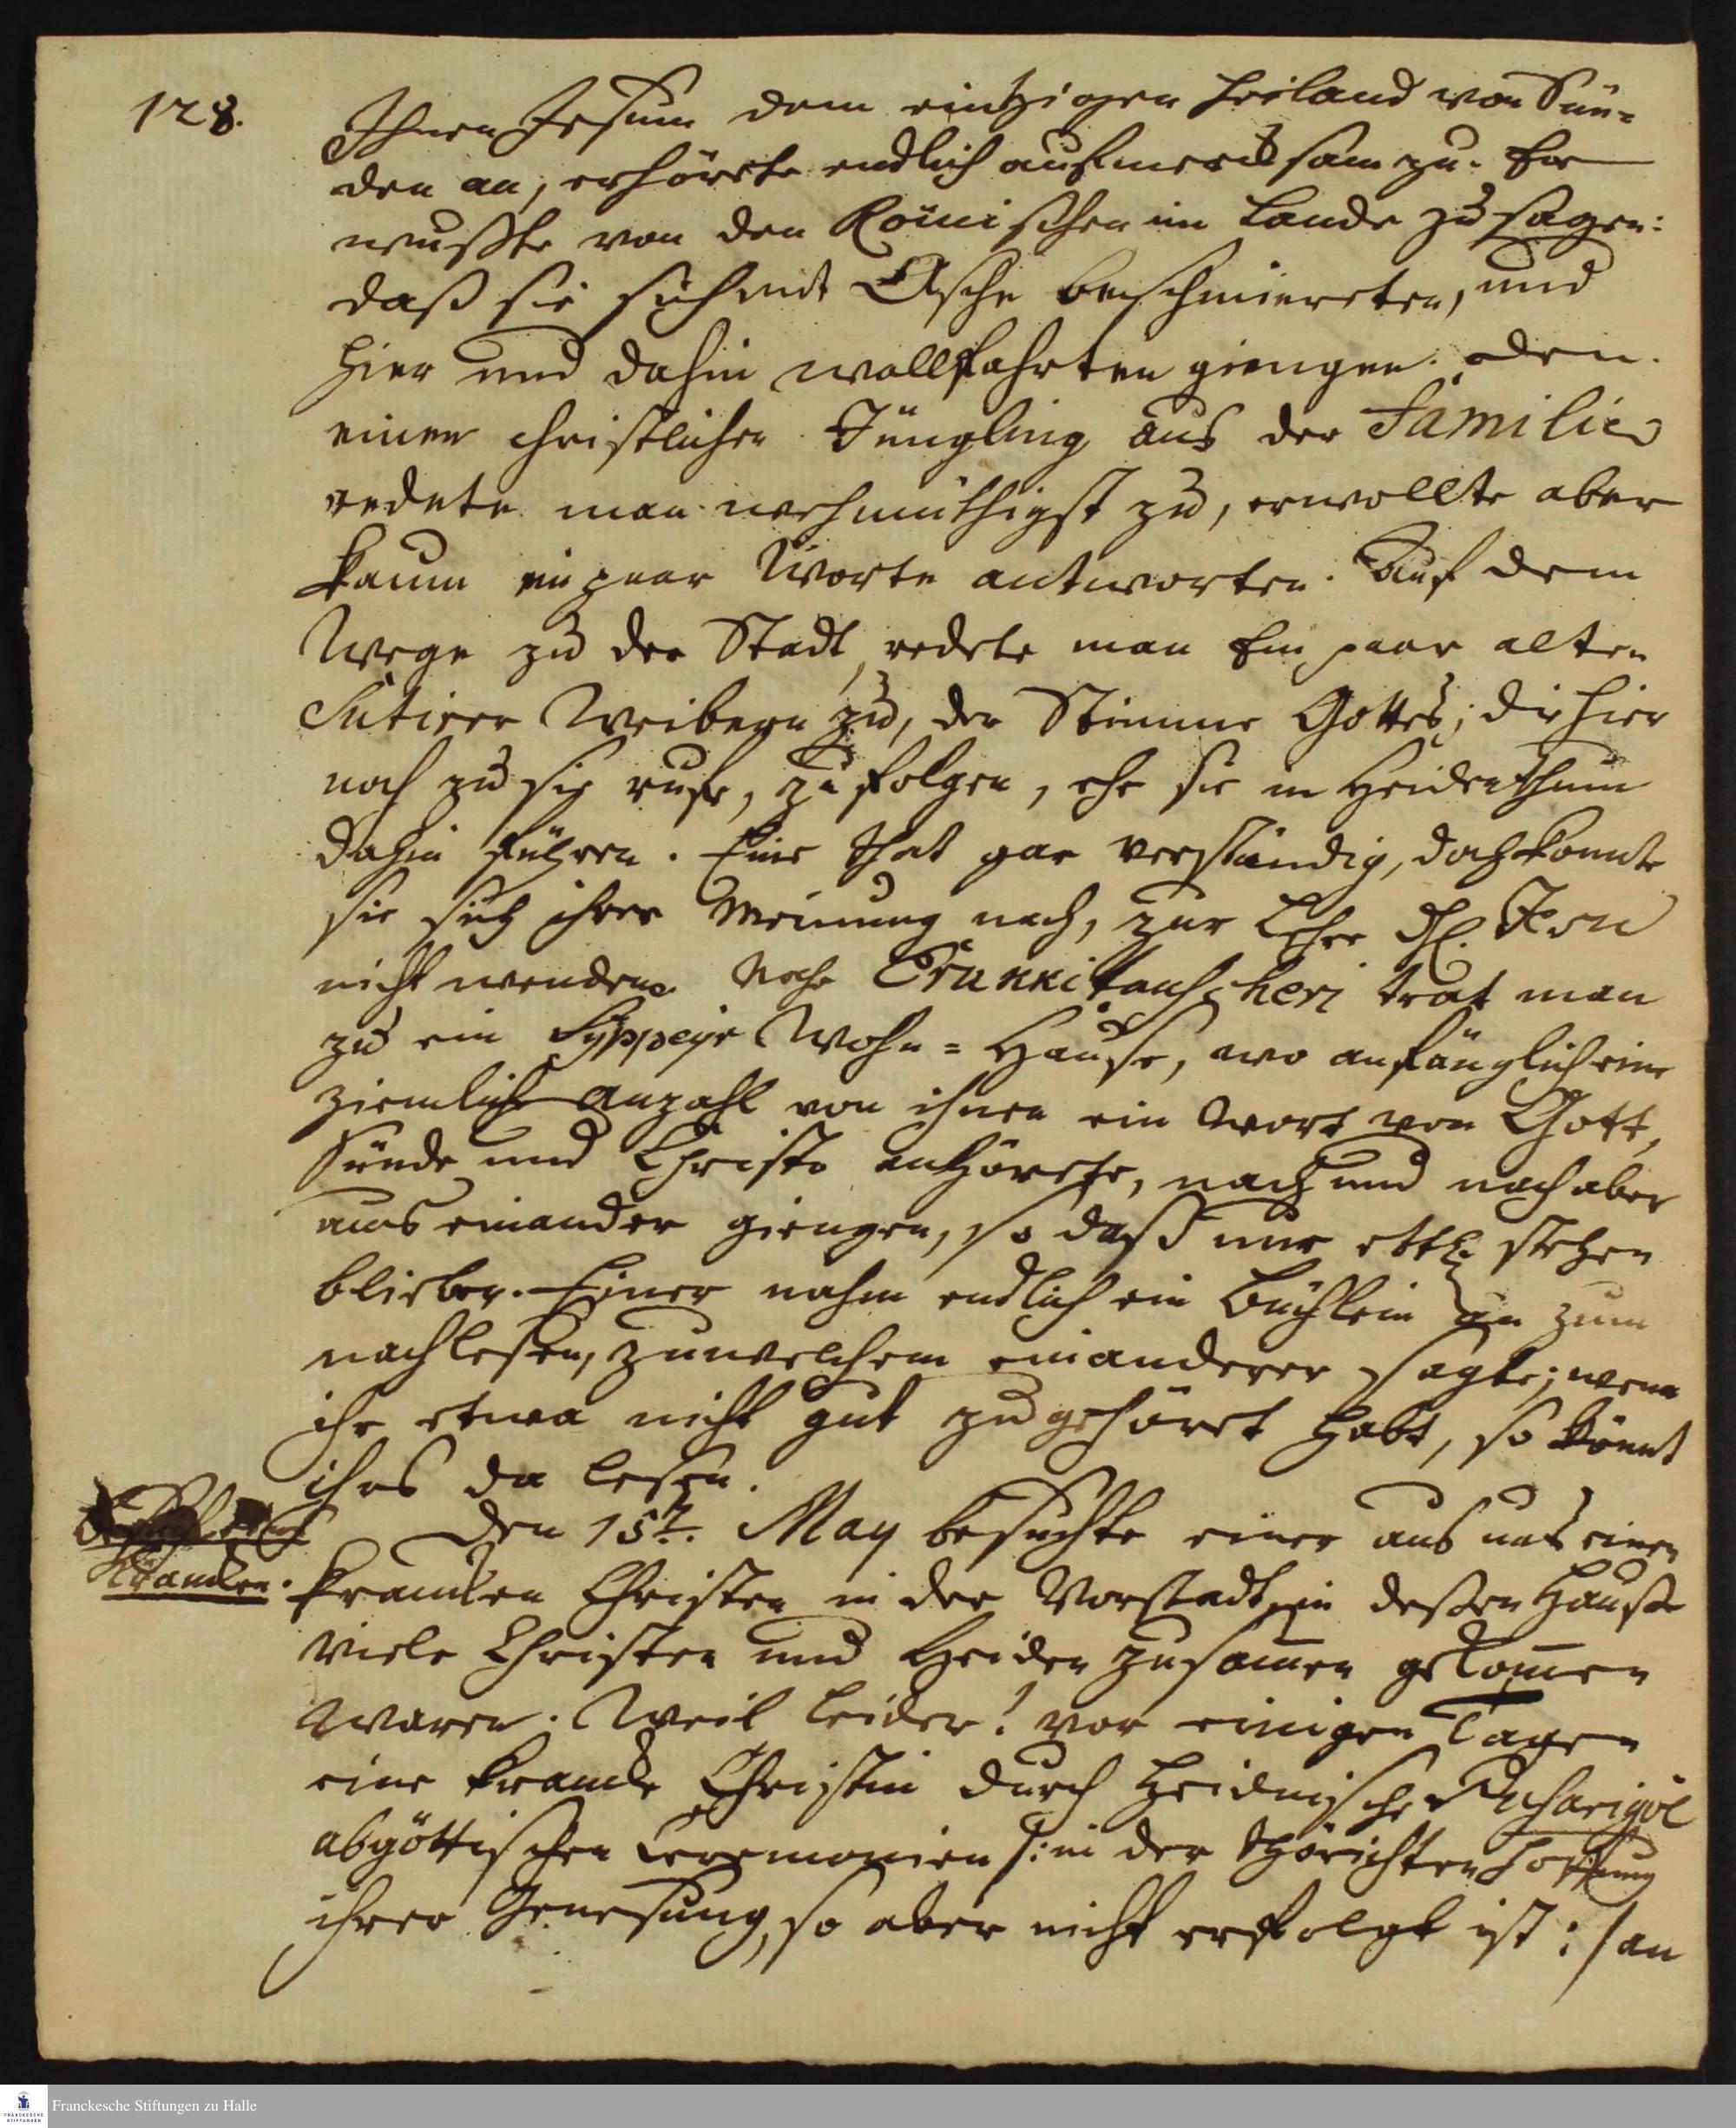 128.
Ihnen Jesum dem eintzigen Heiland von Sün-
den an, er hörete endlich aufmercksam zu. Er
wußte von den Römischen im Lande zu sagen:
daß sie sich mit Asche beschmiereten, und
hier und dahin wallfahrten giengen.
einen christlichen Jüngling aus der Familie
redete man wehmüthigst zu, er wollte aber
kaum ein paar Worte antworten. Auf dem
Wege zu der Stadt, redete man Ein paar alten
Sutirer Weibern zu, der Stimme Gottes; die hier
noch zu sie rufe, zu folgen, ehe sie in Heidenthum
dahin führen. Eine that gar verständig, doch konnte
sie sich ihrer Meinung nach, zur Lehre
nicht wenden. Nahe trat man
zu ein Wohn-Hause, wo anfänglich eine
ziemliche Anzahl von ihnen ein Wort von Gott,
Sünde und Christo anhörete, nach und nach aber
aus einander giengen, so daß nur etl. stehen
blieben. Einer nahm endlich ein Büchlein an zum
nachlesen, zu welchem ein anderer sagte; wenn
ihr etwa nicht gut zugehöret habt, so könnt
ihrs da lesen.
Den 15t. May besuchte einer aus uns einen
Krancken.
krancken Christen in der Vorstadt, in deßen Hauße
viele Christen und Heiden zusam̄en gekom̄en
waren. Weil leider! vor einigen Tagen
eine krancke Christin durch Heidnische
abgöttischen Ceremonien /: in der thörichten Hoffnung
ihrer Genesung, so aber nicht erfolgt ist :/ an
Franckesche Stiftungen zu Halle